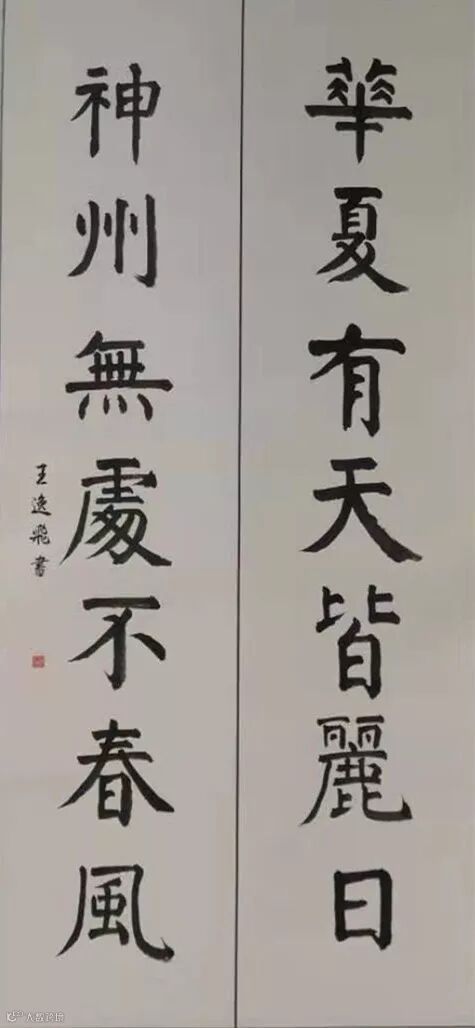 華夏有天皆麗日
神州無處不春風
王逸飛書